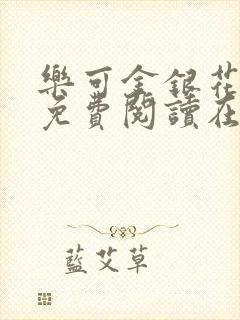 樂可金銀花
免費閱讀在
藍艾草